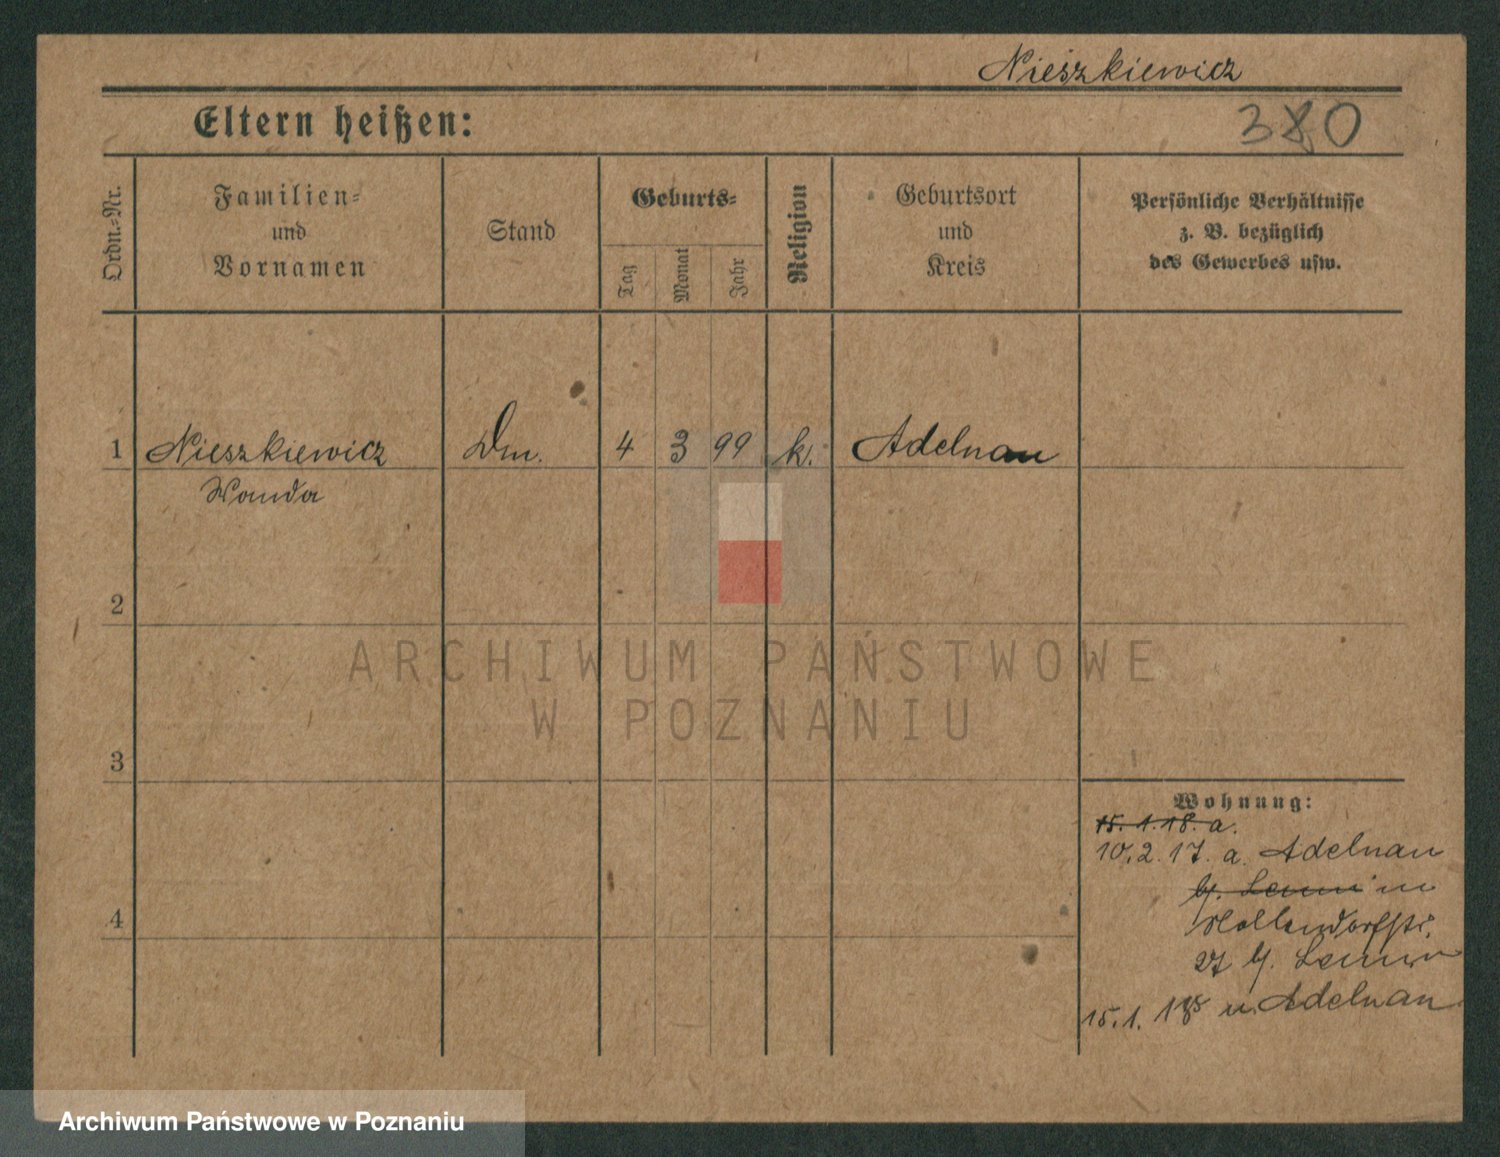 Nieszkiewicz
Eltern heißen:
380
Ordn.-Nr.
Familien-
und
Vornamen
Stand
Geburts-
Tag
Monat
Jahr
Religion
Geburtsort
und
Kreis
Persönliche Verhältnisse
z. B. bezüglich
des Gewerbes usw.
1 Nieszkiewicz Dm. 4 3 99 k. Adelnau
Wanda
2
ARCHIWUM PAŃSTWOWE
W POZNANIU
3
Wohnung:
15. 1. 18. a.
10. 2. 17. a. Adelnau
27 b/.
4
15. 1. 18 n. Adelnau
Archiwum Państwowe w Poznaniu